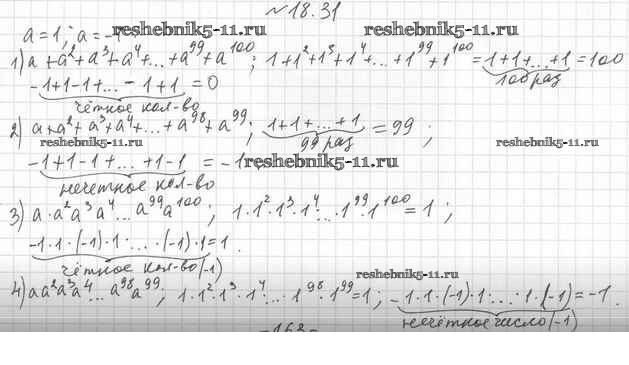 №18.31
a=1; a=-1
reshebnik5-11.ru reshebnik5-11.ru
1) a+a²+a³+a⁴+...+a⁹⁹+a¹⁰⁰; 1+1²+1³+1⁴+...+1⁹⁹+1¹⁰⁰=1+1+...+1=100
100 раз
-1+1-1+...-1+1=0
чётное кол-во
2) a+a²+a³+a⁴+...+a⁹⁸+a⁹⁹; 1+1+...+1=99;
99 раз
reshebnik5-11.ru reshebnik5-11.ru
-1+1-1+...+1-1=-1
reshebnik5-11.ru
нечетное кол-во
3) a·a²a³a⁴...a⁹⁹a¹⁰⁰; 1·1²·1³·1⁴·...·1⁹⁹·1¹⁰⁰=1;
-1·1·(-1)·1·...·(-1)·1=1.
чётное кол-во(-1)
reshebnik5-11.ru
4) aa²a³a⁴...a⁹⁸a⁹⁹; 1·1²·1³·1⁴·...·1⁹⁸·1⁹⁹=1; -1·1·(-1)·1·...·1·(-1)=-1.
нечётное число(-1)
-163-